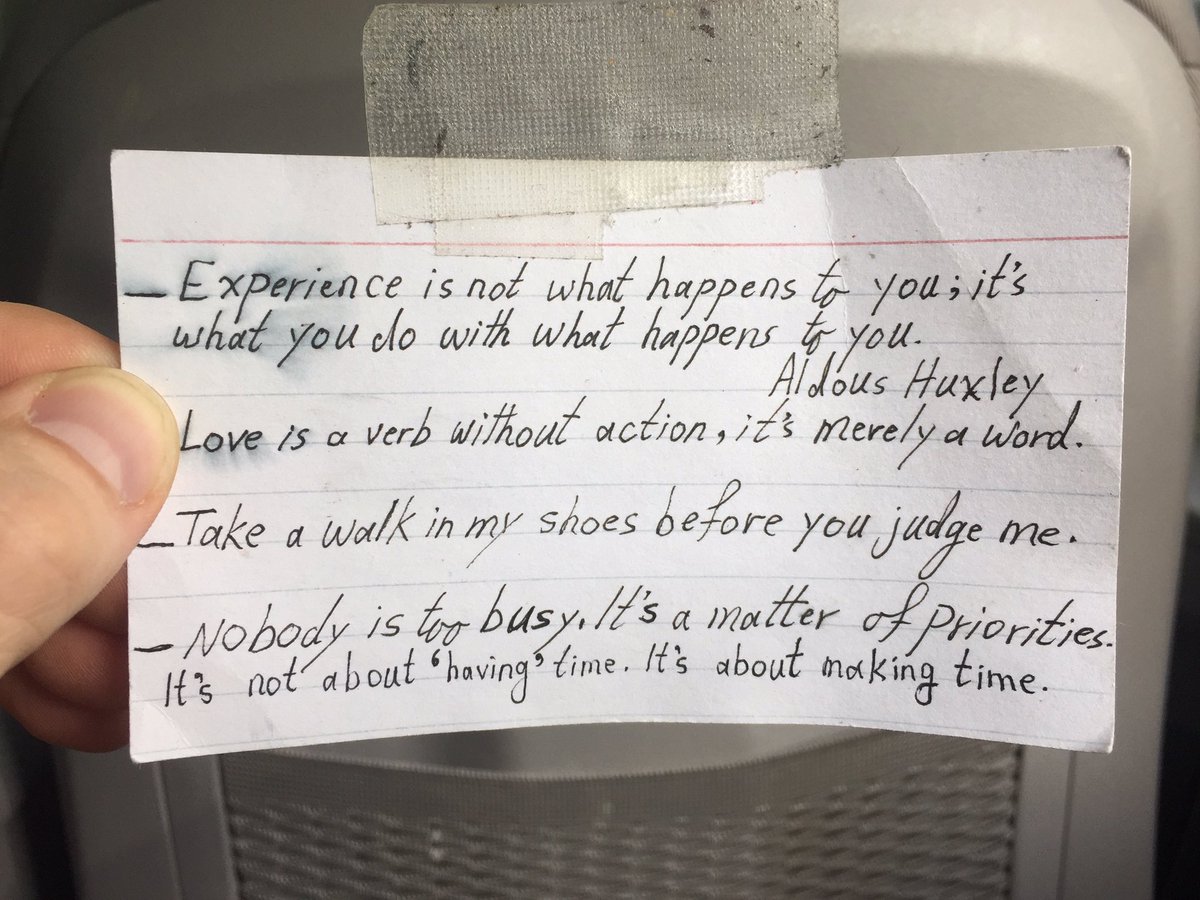 — Experience is not what happens to you; it's
what you do with what happens to you.
Aldous Huxley
Love is a verb without action, it's merely a word.
— Take a walk in my shoes before you judge me.
— Nobody is too busy. It's a matter of priorities.
It's not about 'having' time. It's about making time.